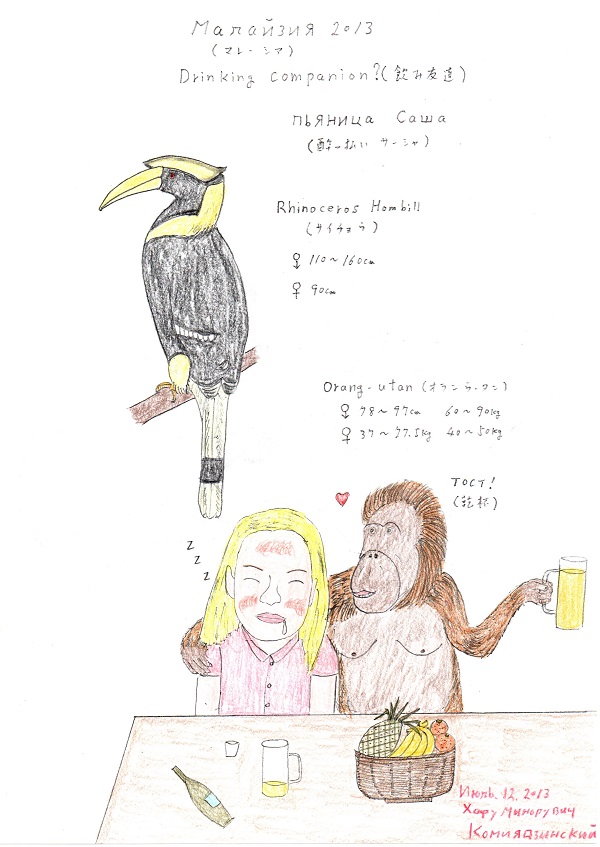 Малайзия 2013
(マレーシア)
Drinking companion?(飲み友達)
пьяница Саша
(酔っ払い サーシャ)
Rhinoceros Hornbill
(サイチョウ)
♂ 110~160cm
♀ 90cm
Orang-utan (オランウータン)
♂ 78~97cm 60~90kg
♀ 37~77.5kg 40~50kg
Тост!
(乾杯)
z
z
z
Июль.12.2013
Хару Минорувич